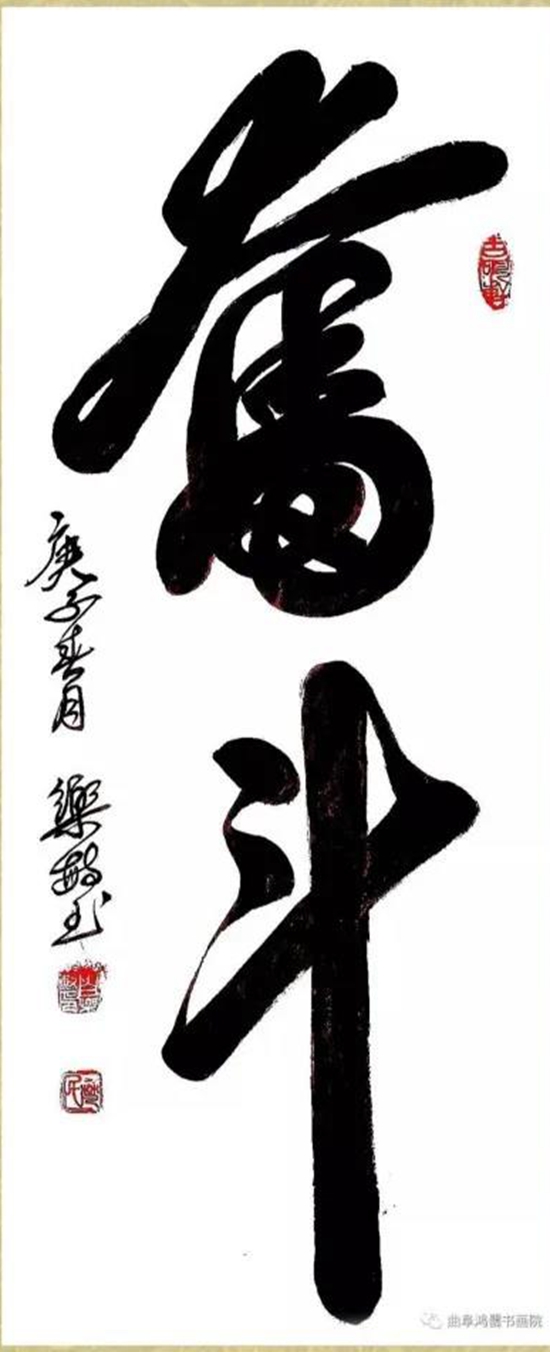 奮斗
庚子春月
樂敏玉
曲阜鸿儒书画院